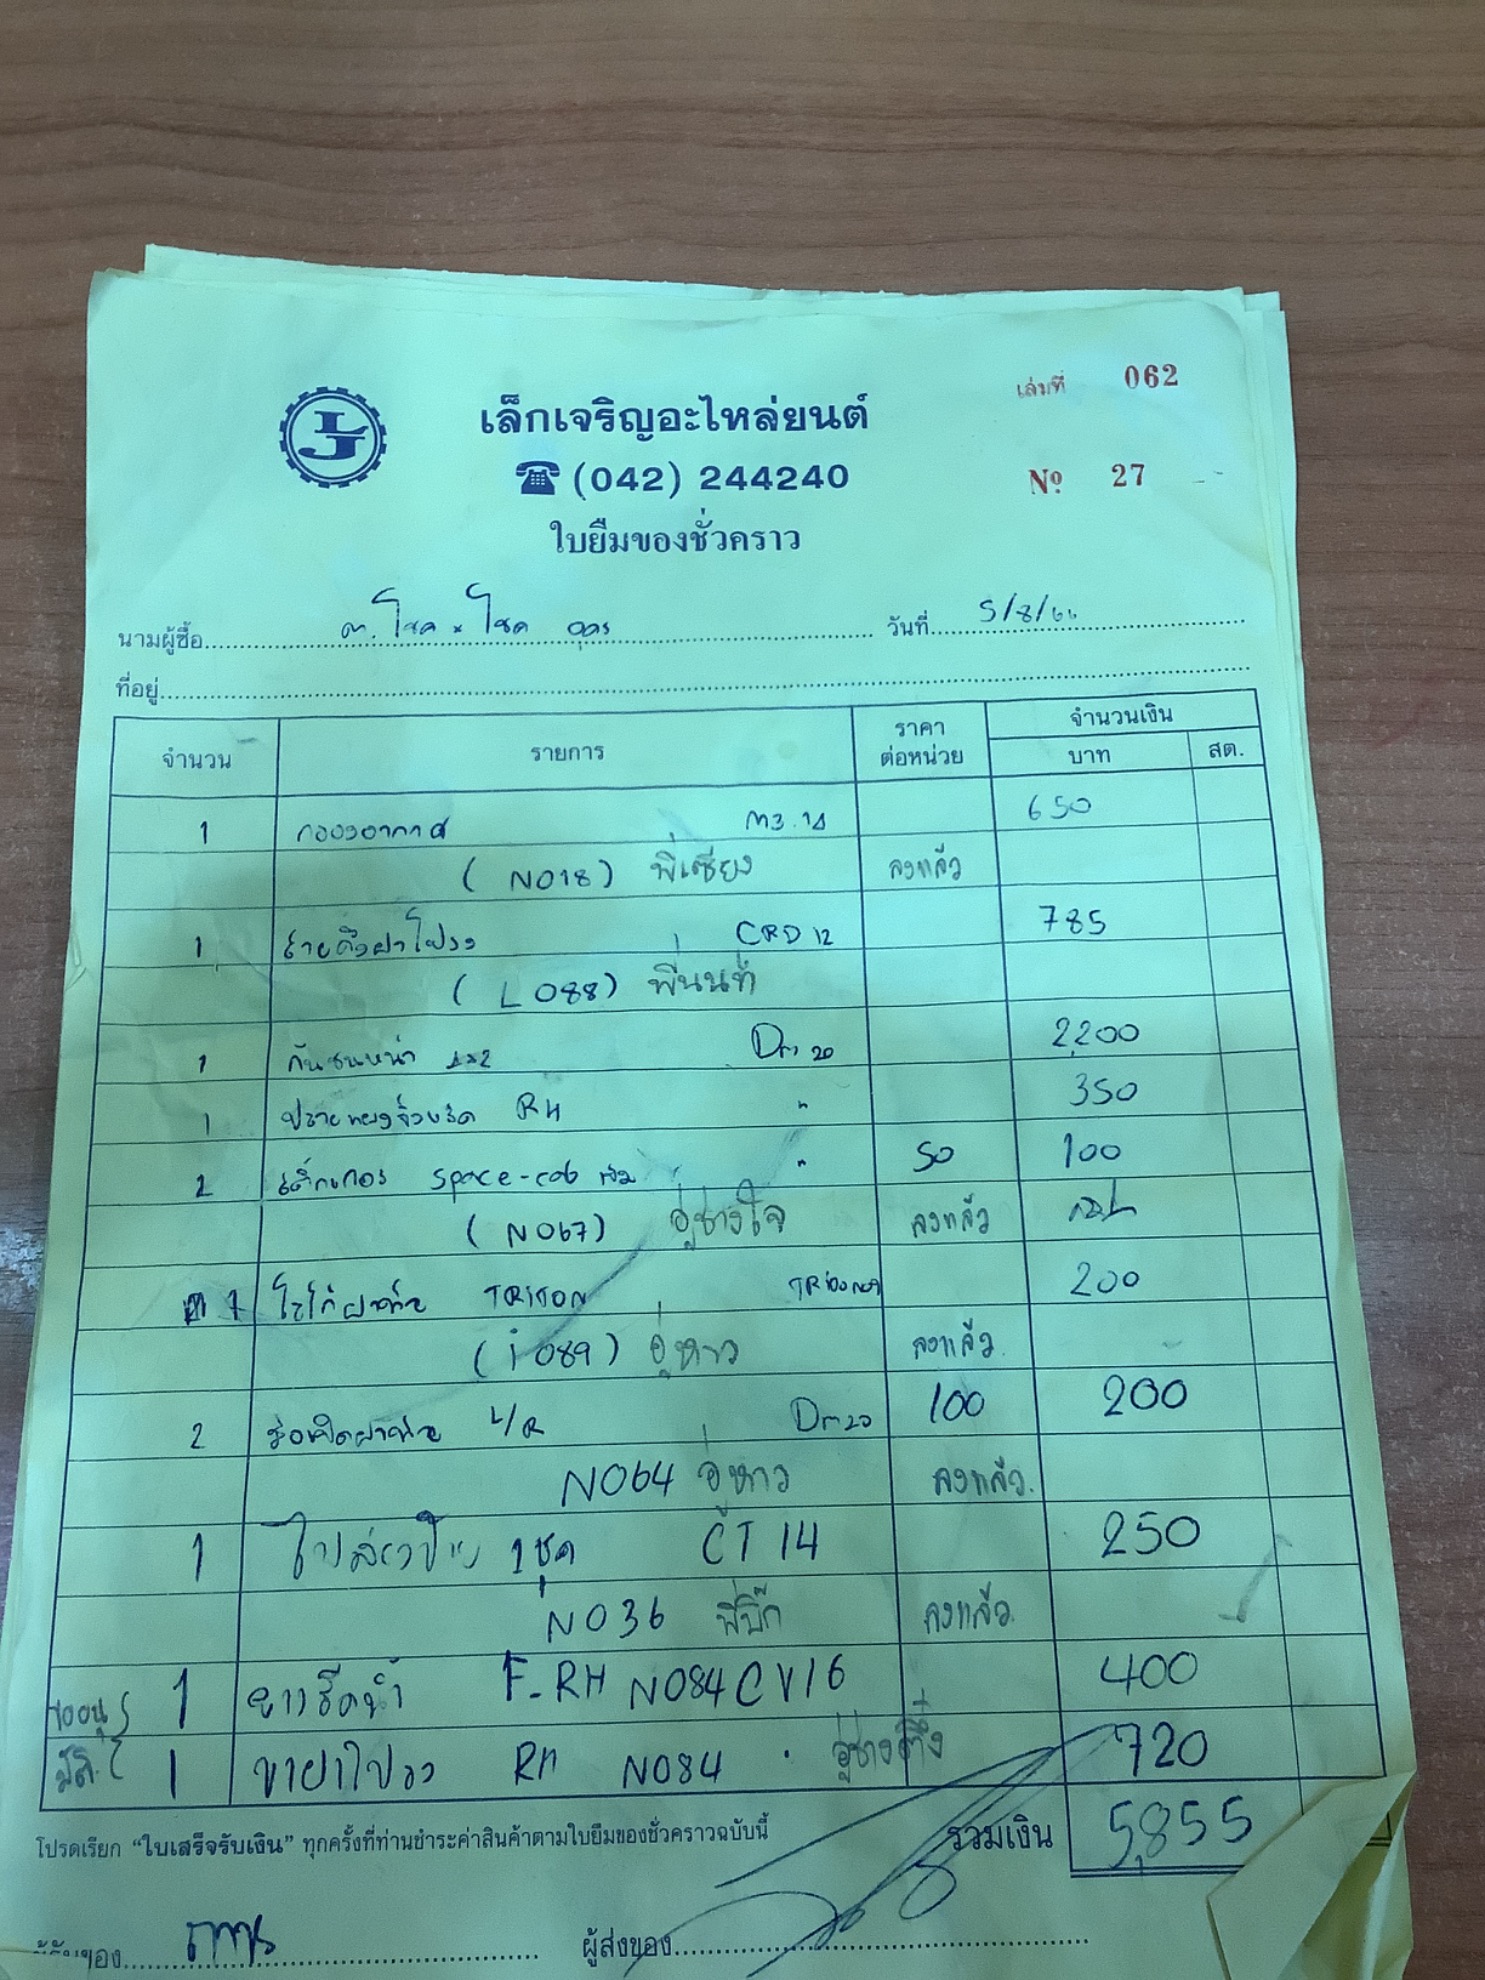 เล่มที่ 062
LJ
เล็กเจริญอะไหล่ยนต์
☎ (042) 244240
Nº 27
ใบยืมของชั่วคราว
นามผู้ซื้อ โชค x โชค อุดร วันที่ 5/8/66
ที่อยู่
จำนวน รายการ ราคาต่อหน่วย จำนวนเงิน
บาท สต.
1 กรองอากาศ 650
(N018) พี่เซียง ลงแล้ว
1 สายดึงฝาโปรง CRD 12 785
(L088) พี่นนท์
1 กันชนหน้า Dm 20 2,200
1 RH " 350
2 สติ๊กเกอร์ space-cab " 50 100
(N067) อู่ช่างใจ ลงแล้ว
1 โลโก้ฝาท้าย TRITON 200
(i089) อู่หาว ลงแล้ว
2 มือเปิดฝาท้าย L/R Dm20 100 200
N064 อู่หาว ลงแล้ว
1 1 ชุด CT 14 250
N036 พี่บิ๊ก ลงแล้ว
1 ยางรีดน้ำ F-RH N084 CV16 400
1 ขาฝาโปรง RH N084 720
โปรดเรียก “ใบเสร็จรับเงิน” ทุกครั้งที่ท่านชำระค่าสินค้าตามใบยืมของชั่วคราวฉบับนี้ รวมเงิน 5,855
ผู้รับของ ผู้ส่งของ